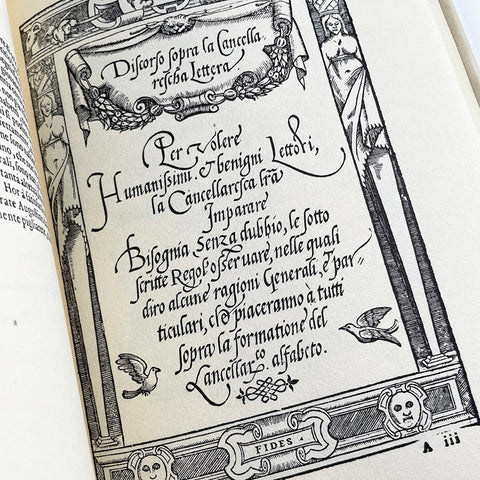 Discorso sopra la Cancella
rescha Lettera
Per Volere
Humanissimi, & benigni Lettori,
la Cancellaresca lr̃a
Imparare
Bisognia senza dubbio, le sotto
scritte Regol' osservare, nelle quali
diro alcune ragioni Generali, e par-
ticulari, che piaceranno à tutti
sopra la formatione del
Cancellar.co alfabeto.
FIDES
A iii